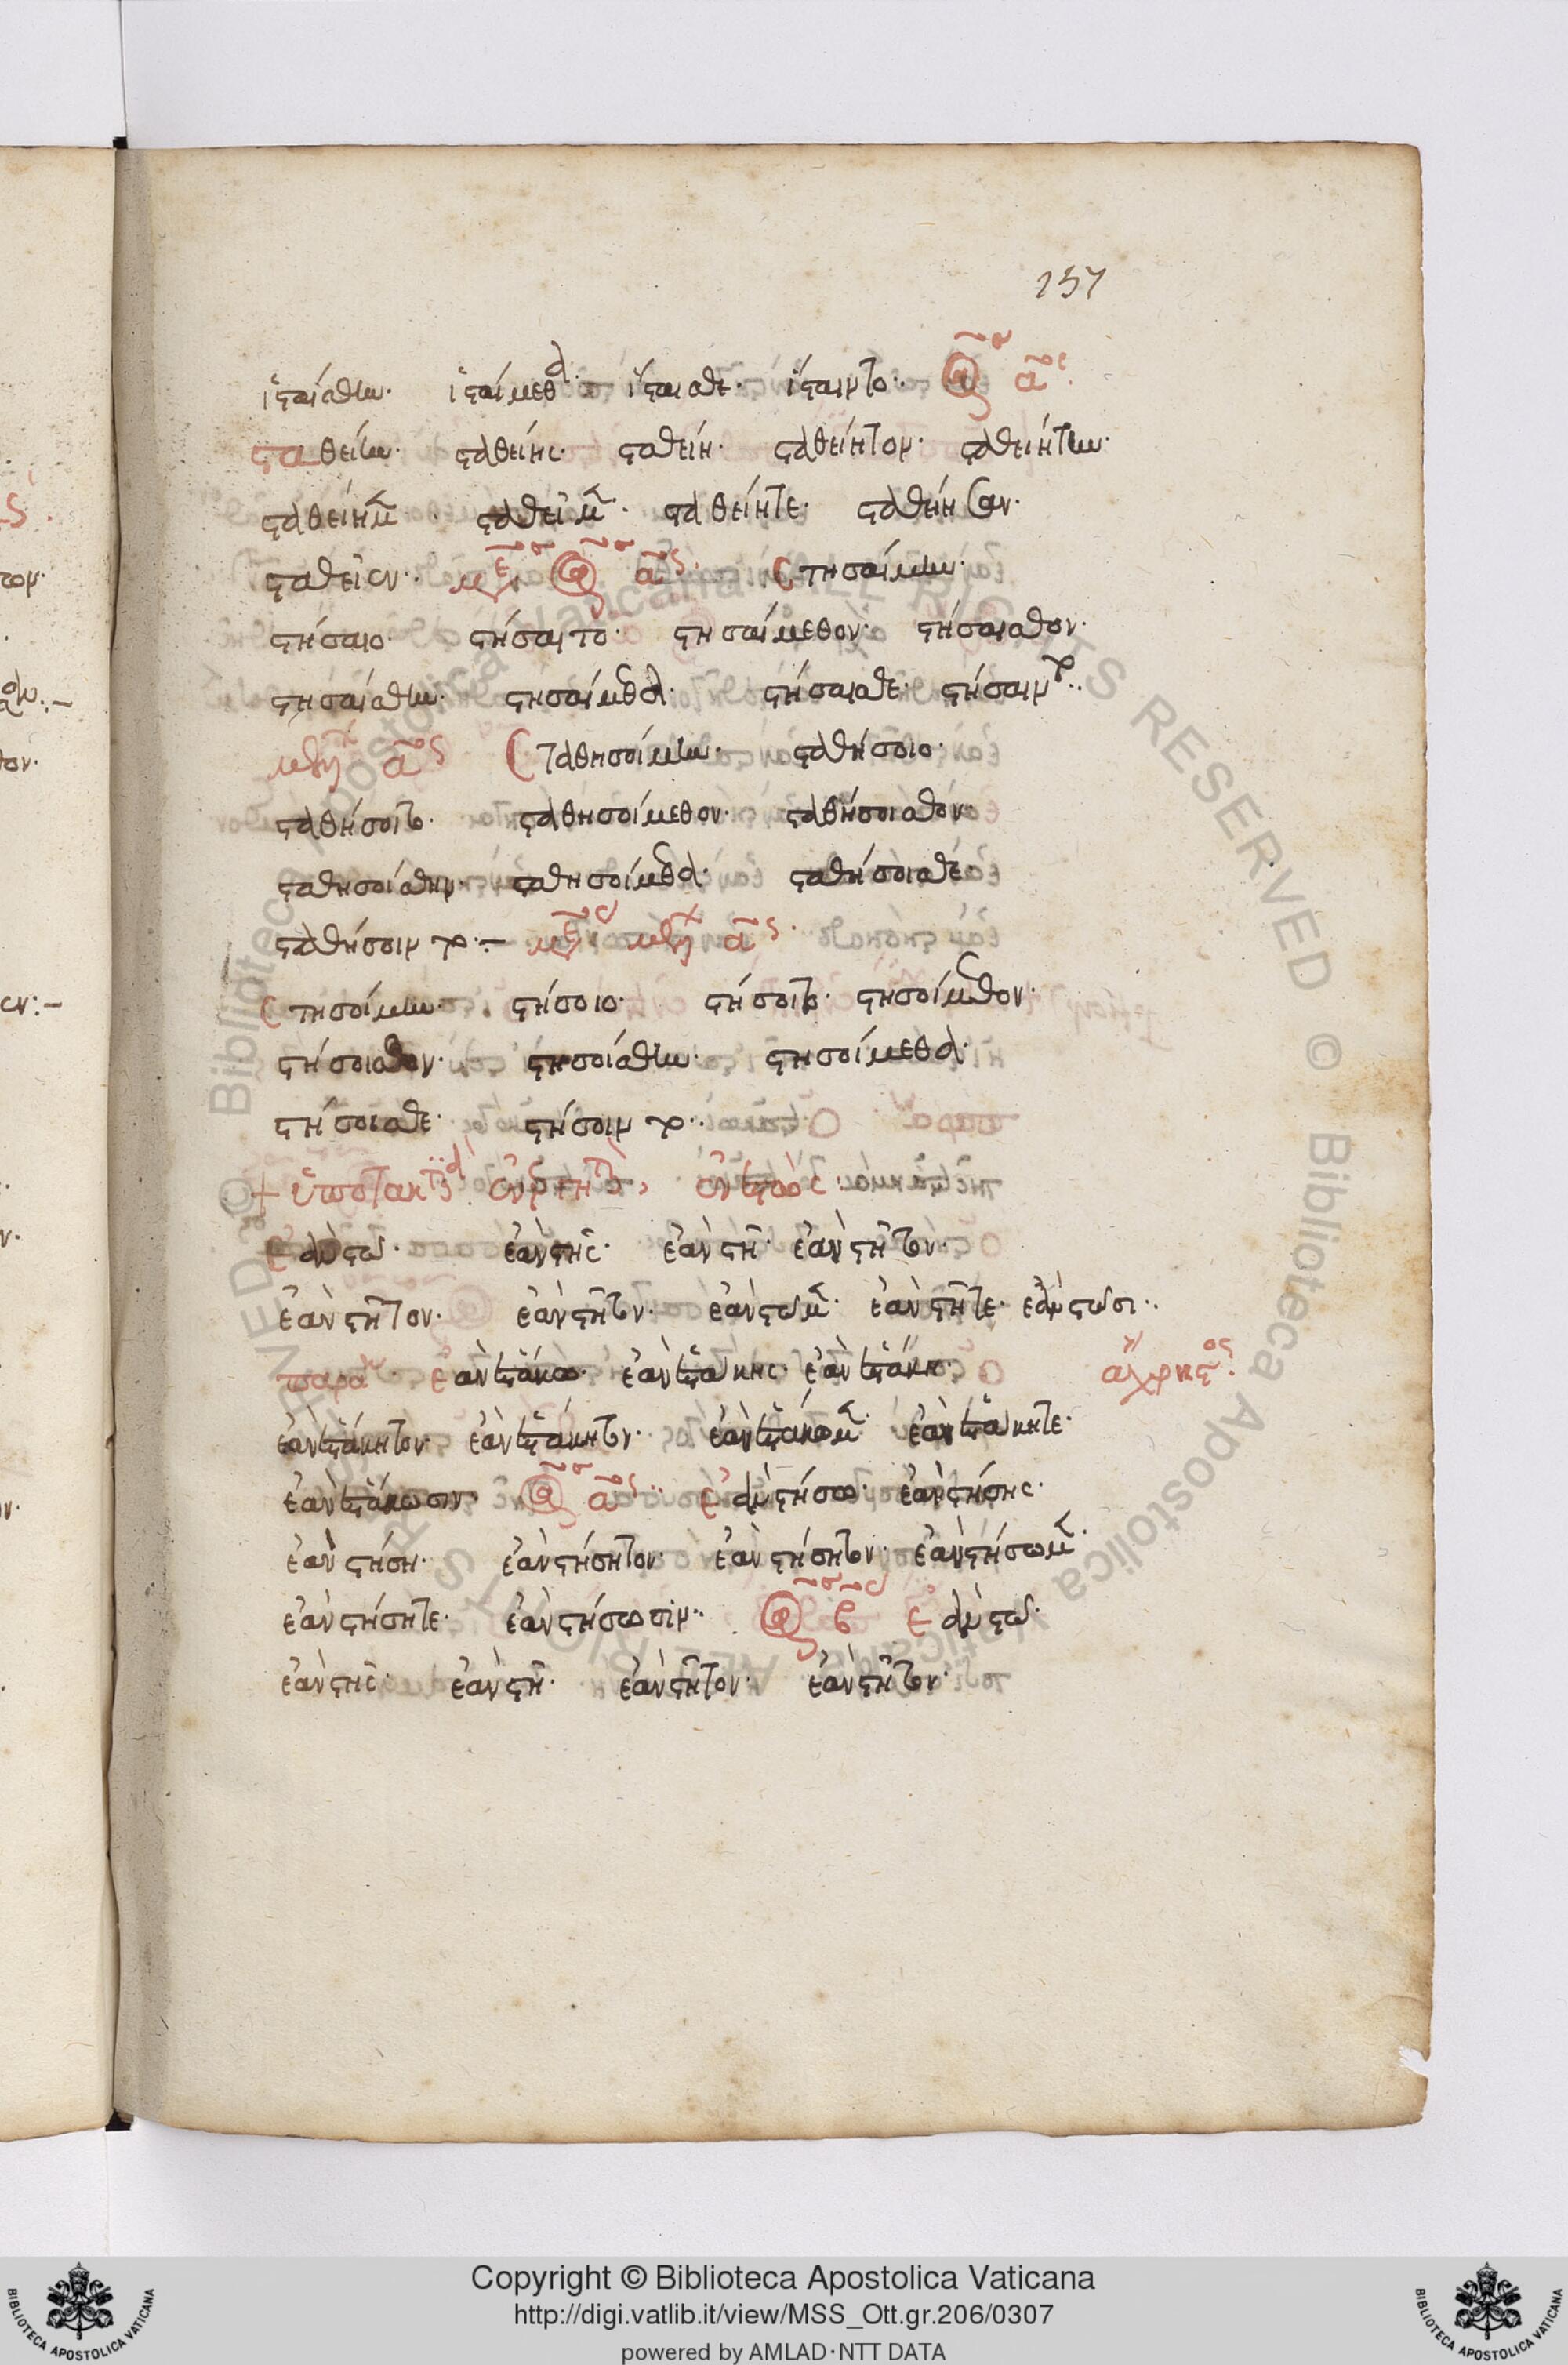 157
ἱσταίσθην· ἱσταίμεθα· ἵσταισθε· ἵσταιντο·
σταθείην· σταθείης· σταθείη· σταθείητον· σταθειήτην·
σταθείημεν· σταθεῖμεν· σταθείητε· σταθείησαν·
σταθεῖεν· στησαίμην·
στήσαιο· στήσαιτο· στησαίμεθον· στήσαισθον·
στησαίσθην· στησαίμεθα· στήσαισθε· στήσαιντο·
σταθησοίμην· σταθήσοιο·
σταθήσοιτο· σταθησοίμεθον· σταθήσοισθον·
σταθησοίσθην· σταθησοίμεθα· σταθήσοισθε
σταθήσοιντο·
στησοίμην· στήσοιο· στήσοιτο· στησοίμεθον·
στήσοισθον· στησοίσθην· στησοίμεθα·
στήσοισθε· στήσοιντο·
+ ὑποτακτικὰ
ἐὰν στῶ· ἐὰν στῆς· ἐὰν στῆ· ἐὰν στῆτον·
ἐὰν στῆτον· ἐὰν στῆτον· ἐὰν στῶμεν· ἐὰν στῆτε· ἐὰν στῶσι·
παρα ἐὰν ἑστάκω· ἐὰν ἑστάκης· ἐὰν ἑστάκη·
ἐὰν ἑστάκητον· ἐὰν ἑστάκητον· ἐὰν ἑστάκωμεν· ἐὰν ἑστάκητε·
ἐὰν ἑστάκωσιν· ἐὰν στήσω· ἐὰν στήσης·
ἐὰν στήση· ἐὰν στήσητον· ἐὰν στήσητον· ἐὰν στήσωμεν·
ἐὰν στήσητε· ἐὰν στήσωσιν· ἐὰν στῶ·
ἐὰν στῆς· ἐὰν στῆ· ἐὰν στῆτον· ἐὰν στῆτον·
Copyright © Biblioteca Apostolica Vaticana
http://digi.vatlib.it/view/MSS_Ott.gr.206/0307
powered by AMLAD·NTT DATA
BIBLIOTECA APOSTOLICA VATICANA
BIBLIOTECA APOSTOLICA VATICANA